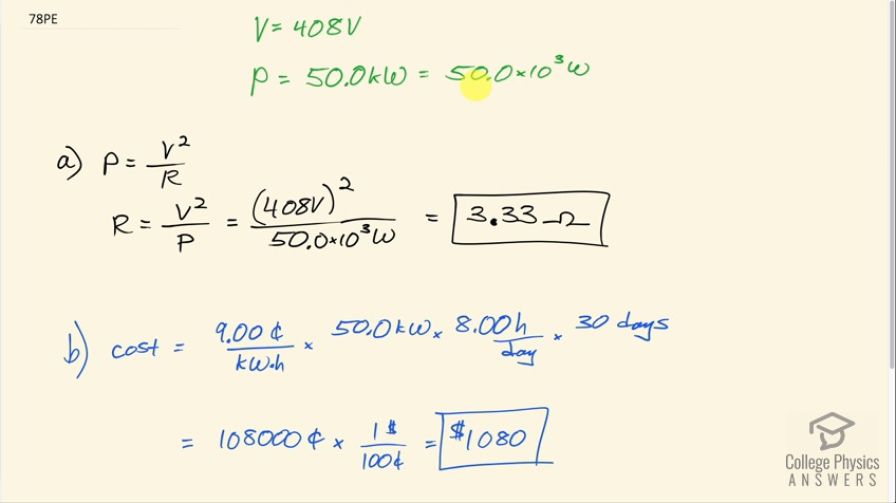 78PE
V = 408V
P = 50.0kW = 50.0×10³W
a) P = V²/R
R = V²/P = (408V)²/50.0×10³W = 3.33 Ω
b) cost = 9.00 ¢/kW·h × 50.0kW × 8.00h/day × 30 days
= 108000 ¢ × 1$/100¢ = $1080
College Physics
ANSWERS